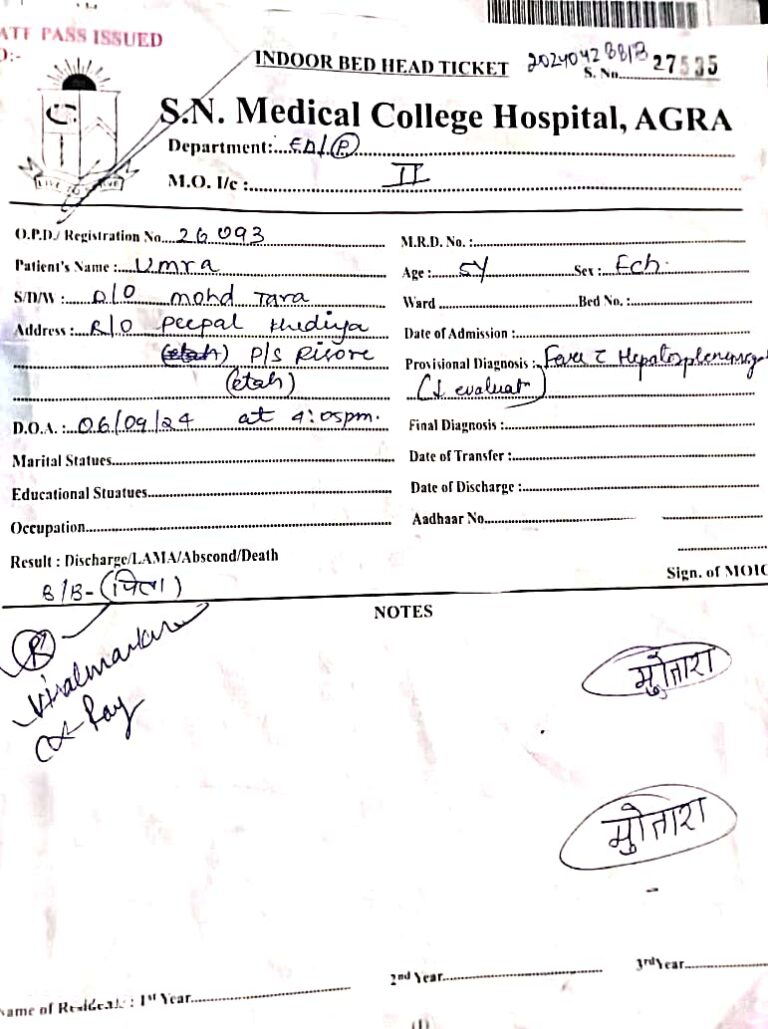 ATE PASS ISSUED
O:-
INDOOR BED HEAD TICKET
20240428813
S. No. 27535
S.N. Medical College Hospital, AGRA
Department: ED/(P)
M.O. I/c : II
O.P.D./ Registration No. 26093
M.R.D. No. :
Patient's Name : Umra
Age : 5Y Sex : Fch.
S/D/W : D/O mohd Tara
Ward Bed No. :
Address : R/O Peepal Khediya
Date of Admission :
(etah) P/S Risore
Provisional Diagnosis : Fever c Hepatosplenomeg
(etah)
(↓ evaluat)
D.O.A. : 06/09/24 at 4:05pm.
Final Diagnosis :
Marital Statues
Date of Transfer :
Educational Stuatues
Date of Discharge :
Occupation
Aadhaar No.
Result : Discharge/LAMA/Abscond/Death
Sign. of MOIC
B/B- (पिता)
NOTES
R
Viralmarker
X Ray
मुोतारा
मुोतारा
Name of Resident : 1st Year
2nd Year
3rd Year
(1)